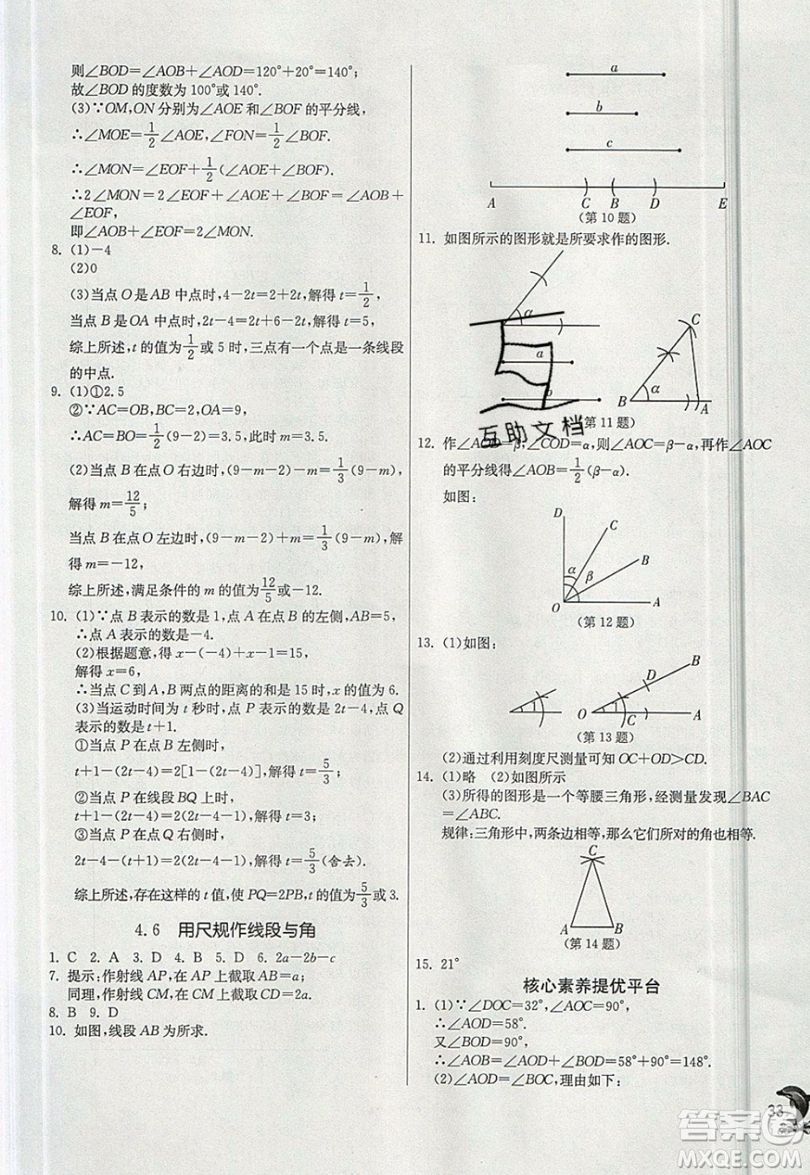 则∠BOD=∠AOB+∠AOD=120°+20°=140°;
故∠BOD的度数为100°或140°.
(3)∵OM,ON分别为∠AOE和∠BOF的平分线,
∴∠MOE=1/2∠AOE,∠FON=1/2∠BOF.
∴∠MON=∠EOF+1/2(∠AOE+∠BOF).
∴2∠MON=2∠EOF+∠AOE+∠BOF=∠AOB+
∠EOF,
即∠AOB+∠EOF=2∠MON.
8. (1)-4
(2)0
(3)当点O是AB中点时,4-2t=2+2t,解得t=1/2,
当点B是OA中点时,2t-4=2t+6-2t,解得t=5,
综上所述,t的值为1/2或5时,三点有一个点是一条线段
的中点.
9. (1)①2.5
②∵AC=OB,BC=2,OA=9,
∴AC=BO=1/2(9-2)=3.5,此时m=3.5.
(2)当点B在点O右边时,(9-m-2)-m=1/3(9-m),
解得m=12/5;
当点B在点O左边时,(9-m-2)+m=1/3(9-m),解得
m=-12,
综上所述,满足条件的m的值为12/5或-12.
10. (1)∵点B表示的数是1,点A在点B的左侧,AB=5,
∴点A表示的数是-4.
(2)根据题意,得x+4+x-1=15,
解得x=6,
∴当点C到A,B两点的距离的和是15时,x的值为6.
(3)当运动时间为t秒时,点P表示的数是2t-4,点Q
表示的数是t+1.
①当点P在点B左侧时,
t+1-(2t-4)=2[1-(2t-4)],解得t=5/3;
②当点P在线段BQ上时,
t+1-(2t-4)=2(2t-4-1),解得t=3;
③当点P在点Q右侧时,
2t-4-(t+1)=2(2t-4-1),解得t=5/3(舍去).
综上所述,存在这样的t值,使PQ=2PB,t的值为5/3或3.
4.6 用尺规作线段与角
1. C 2. A 3. D 4. B 5. D 6. 2a-2b-c
7. 提示:作射线AP,在AP上截取AB=a.
同理,作射线CM,在CM上截取CD=2a.
8. B 9. D
10. 如图,线段AB为所求.
a
b
c
A C B D E
(第10题)
11. 如图所示的图形就是所要求作的图形.
α
a
C
B α A
(第11题)
互助文档
12. 作∠AOD=β,∠COD=α,则∠AOC=β-α,再作∠AOC
的平分线得∠AOB=1/2(β-α).
如图:
D
C
B
α
β
O A
(第12题)
13. (1)如图:
B
D
1
O C A
(第13题)
(2)通过利用刻度尺测量可知OC+OD>CD.
14. (1)略 (2)如图所示
(3)所得的图形是一个等腰三角形,经测量发现∠BAC
=∠ABC.
规律:三角形中,两条边相等,那么它们所对的角也相等.
C
A B
(第14题)
15. 21°
核心素养提优平台
1. (1)∵∠DOC=32°,∠AOC=90°,
∴∠AOD=58°.
又∠BOD=90°,
∴∠AOB=∠AOD+∠BOD=58°+90°=148°.
(2)∠AOD=∠BOC,理由如下:
33
答案圈
MXQE.COM